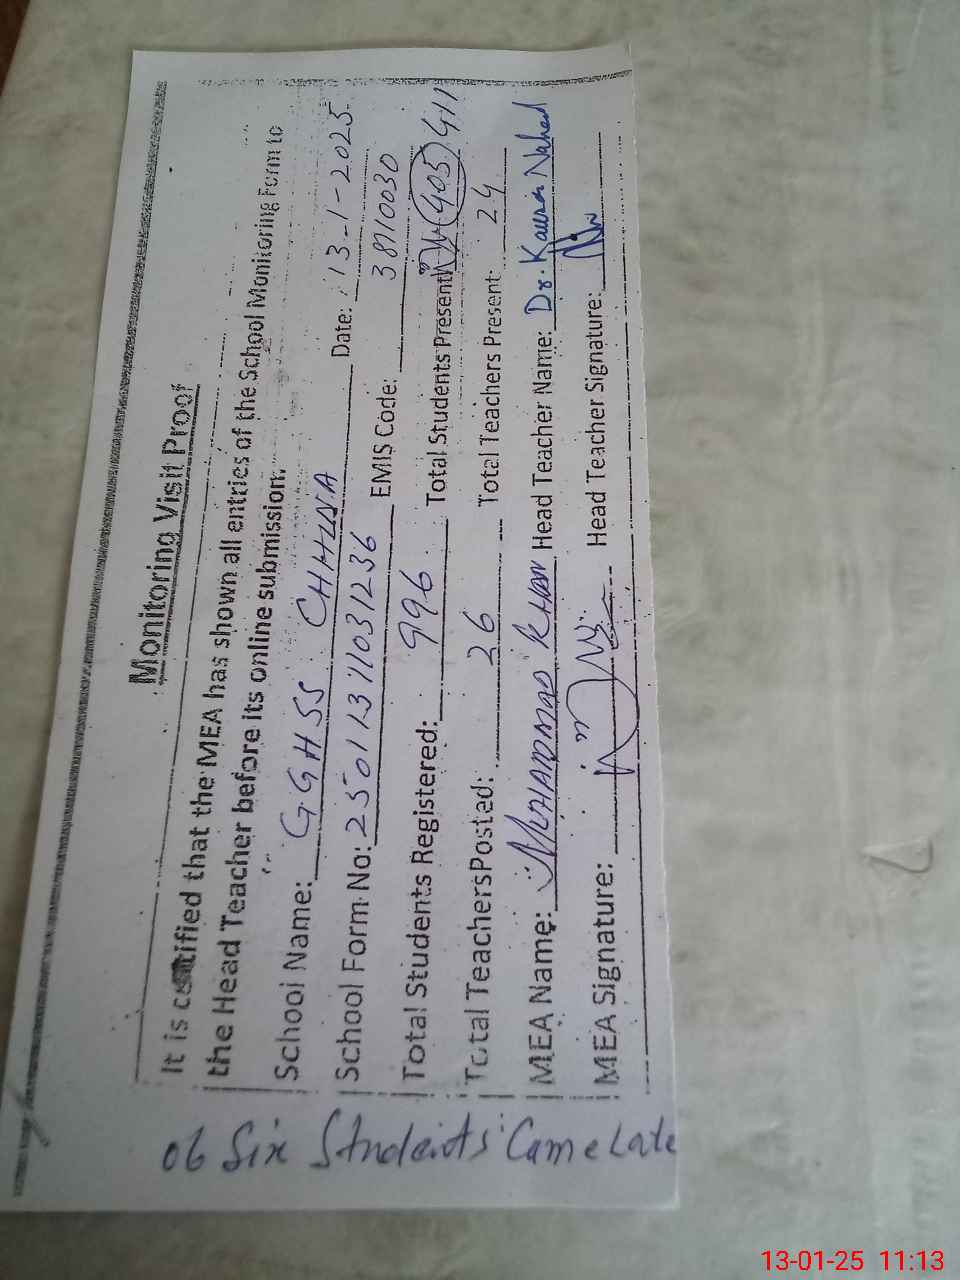 Monitoring Visit Proof
It is certified that the MEA has shown all entries of the School Monitoring Form to
the Head Teacher before its online submission.
School Name: GGHSS CHHINA Date: 13-1-2025
School Form No: 250113711031236 EMIS Code: 38110030
Total Students Registered: 996 Total Students Present: 405 411
Total TeachersPosted: 26 Total Teachers Present: 24
MEA Name: MUHAMMAD KHAN Head Teacher Name: Dr. Kausar Naheed
MEA Signature: Head Teacher Signature:
06 Six Students Came Late
13-01-25 11:13